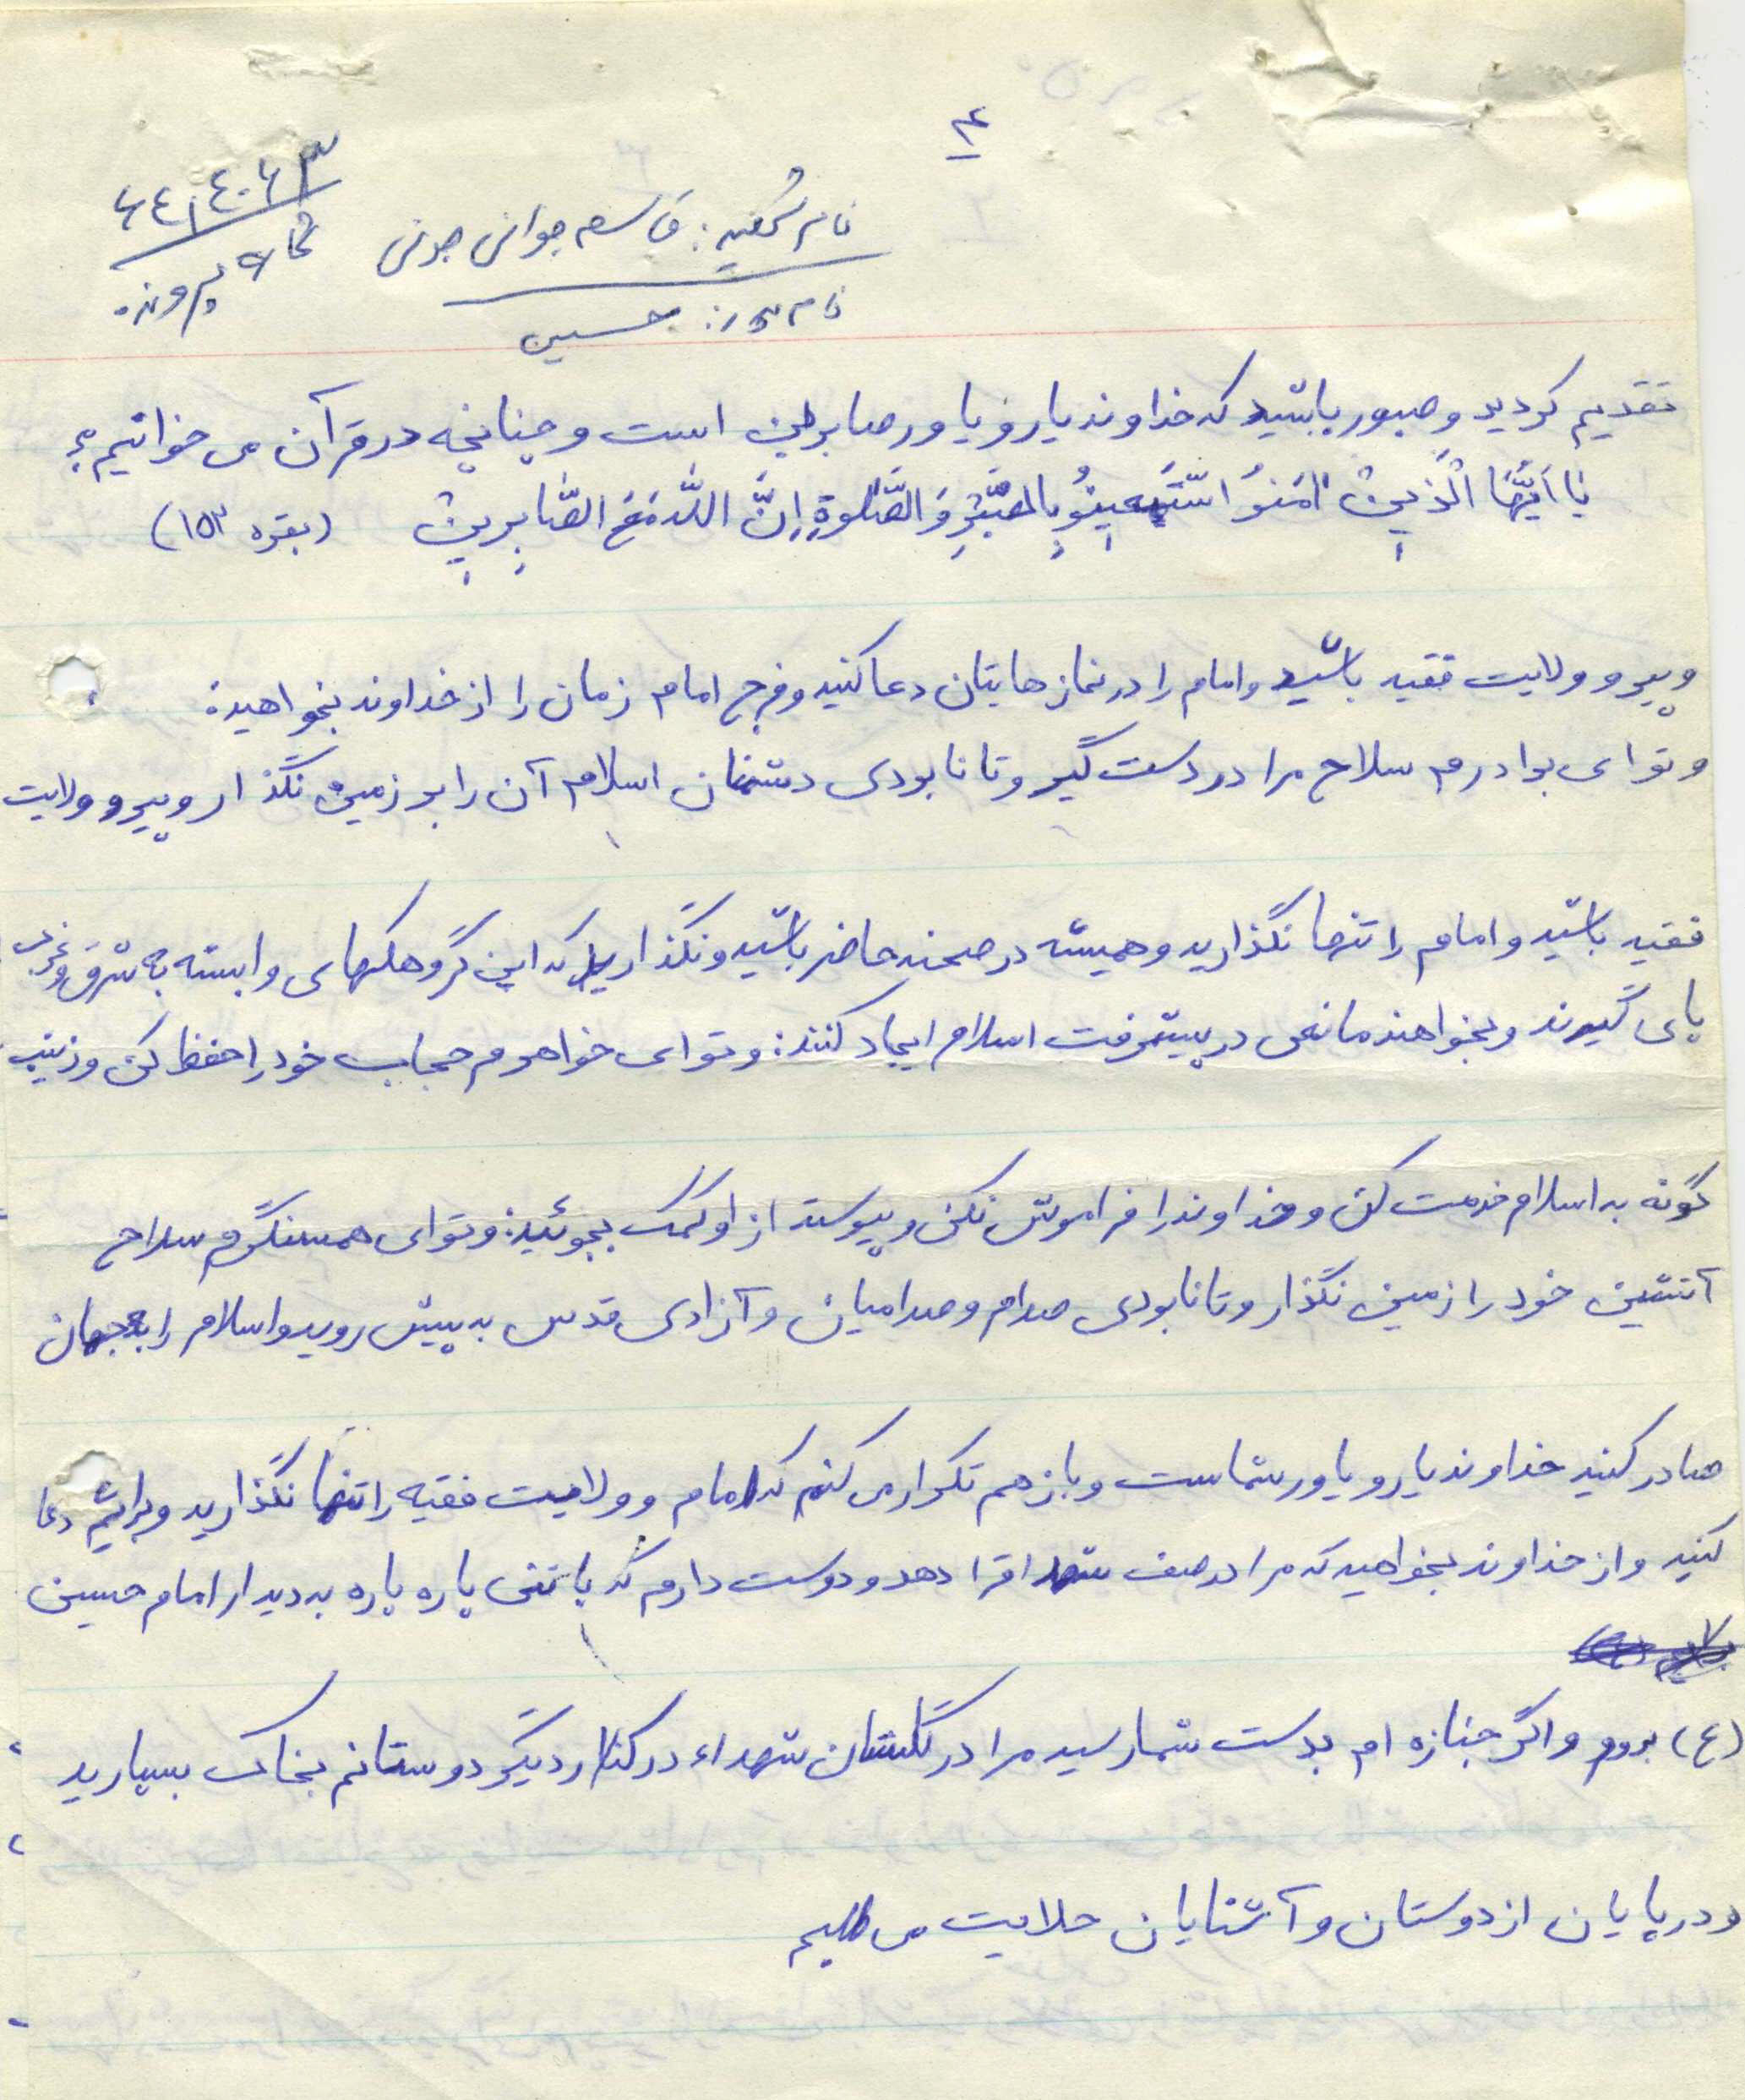 ۴
نام شهید: قاسم جوانی جونی
نام پدر: حسین
شماره پرونده
تقدیم کردید و صبور باشید که خداوند یار و یاور صابرین است و چنانچه در قرآن می خوانیم
یا اَیُّهَا الَّذینَ امَنوُ اسّتَعینوُ بِالصَّبْرِ وَ الصَّلوةِ اِنَّ اللّهَ مَعَ الصّابِرینْ (بقره ۱۵۳)
و پیرو ولایت فقیه باشید و امام را در نمازهایتان دعا کنید و فرج امام زمان را از خداوند بخواهید:
و تو ای برادرم سلاح مرا در دست گیر و تا نابودی دشمنان اسلام آن را بر زمین نگذار و پیرو ولایت
فقیه باشید و امام را تنها نگذارید و همیشه در صحنه حاضر باشید و نگذارید که این گروهکهای وابسته به شرق و غرب
پای گیرند و بخواهند مانعی در پیشرفت اسلام ایجاد کنند: و تو ای خواهرم حجاب خود را حفظ کن و زینب
گونه به اسلام خدمت کن و خداوند را فراموش نکن و پیوسته از او کمک بجوئید: و تو ای همسنگرم سلاح
آتشین خود را زمین نگذار و تا نابودی صدام و صدامیان و آزادی قدس به پیش روید و اسلام را به جهان
صادر کنید خداوند یار و یاور شماست و باز هم تکرار می کنم که امام و ولایت فقیه را تنها نگذارید و برایم دعا
کنید و از خداوند بخواهید که مرا در صف شهدا قرا دهد و دوست دارم که با تنی پاره پاره به دیدار امام حسین
(ع) بروم و اگر جنازه ام بدست شما رسید مرا در گلستان شهداء در کنار دیگر دوستانم بخاک بسپارید
و در پایان از دوستان و آشنایان حلالیت می طلبم